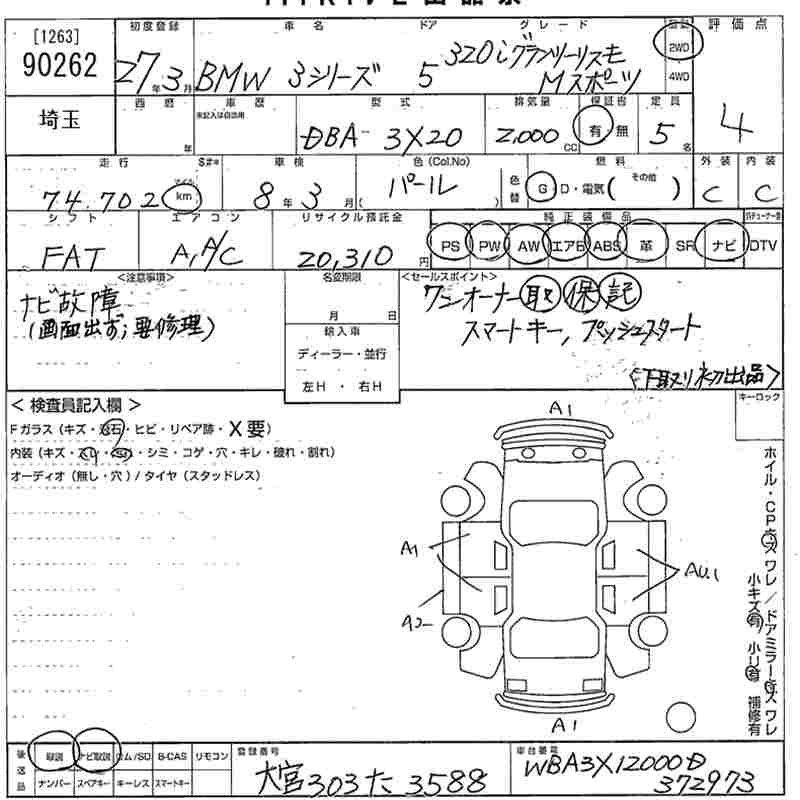 [1263]
90262
埼玉
初度登録 車名 ドア グレード 駆動 評価点
27年3月 BMW 3シリーズ 5 320i グランツーリスモ Mスポーツ 2WD 4WD 4
西暦 年 車歴 未記入は自家用 型式 排気量 保証書 定員
DBA-3X20 2,000 CC 有・無 5名
走行 マイル km S#* 車検 色(Col.No) 色替 燃料 外装 内装
74,702 km 8年3月 パール ( ) G・D・電気( その他 ) C C
シフト エアコン リサイクル預託金 純正装備品
FAT A,A/C 20,310円 PS PW AW エアB ABS 革 SR ナビ DTV
<注意事項> 名変期限 <セールスポイント>
ナビ故障 月 日 ワンオーナー 取 保 記
(画面出ず;要修理) 輸入車 スマートキー, プッシュスタート
ディーラー・並行
左H・右H <下取り初出品>
<検査員記入欄> キーロック
Fガラス(キズ・飛石・ヒビ・リペア跡・X要)
内装(キズ・スレ・・シミ・コゲ・穴・キレ・破れ・割れ)
オーディオ(無し・穴)/タイヤ(スタッドレス)
A1
A1
A2
AU1
A1
ホイル・CPキズ ワレ/ドアミラーキズ ワレ
小キズ有 小凹有 補修有
後送品 取説 ナビ取説 ロム/SD B-CAS リモコン
ナンバー スペアキー キーレス スマートキー
登録番号
大宮303た3588
車台番号
WBA3X12000D
372973